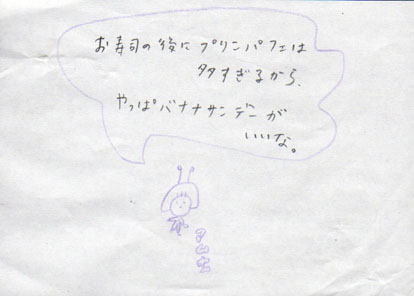 お寿司の後にプリンパフェは
多すぎるから、
やっぱバナナサンデーが
いいな。